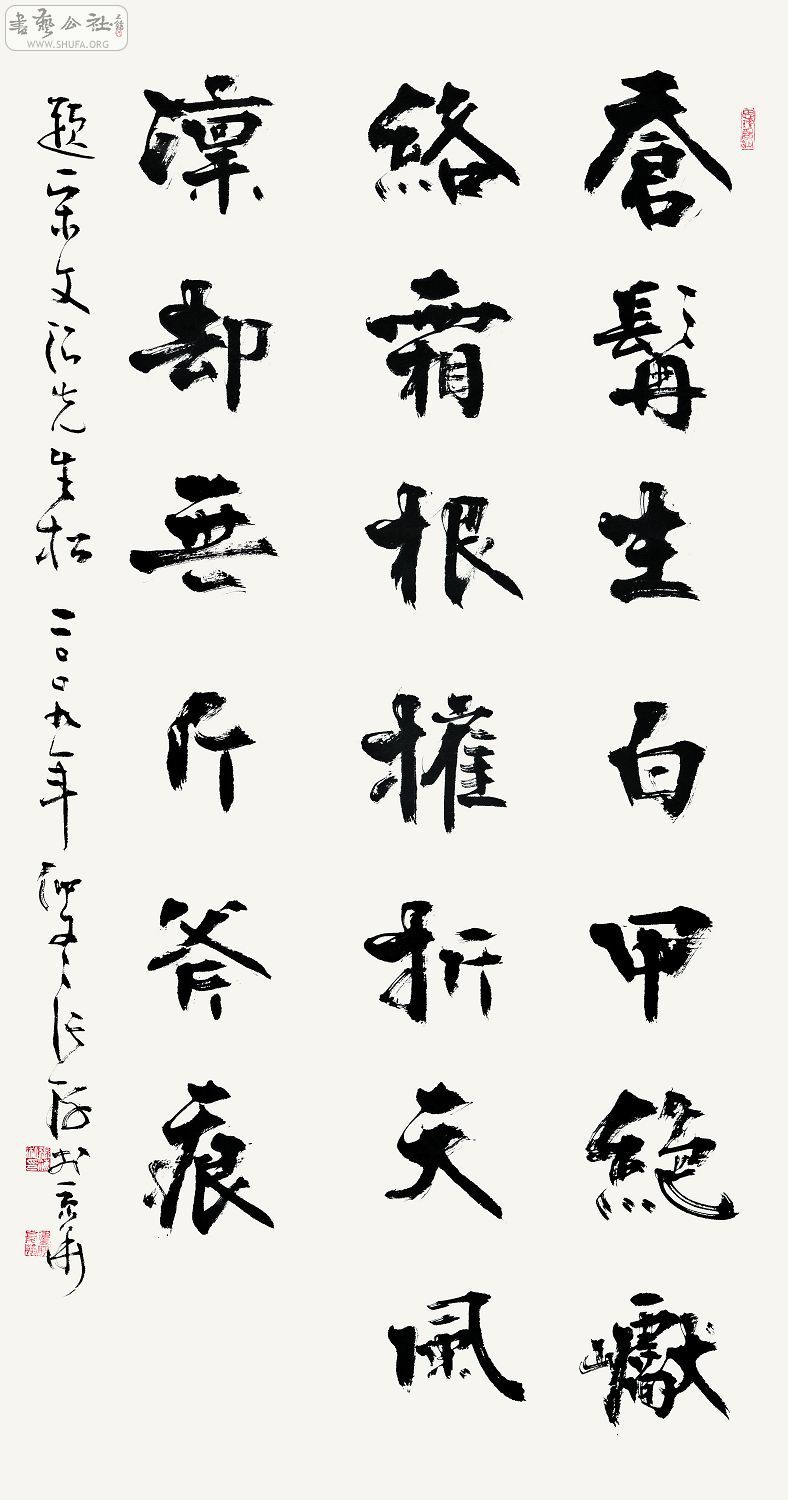 蒼髯生白甲絕巘
絡霜根摧折天風
凜却無斤斧痕
題宋文治先生松 二〇〇九年
書藝公社
WWW.SHUFA.ORG